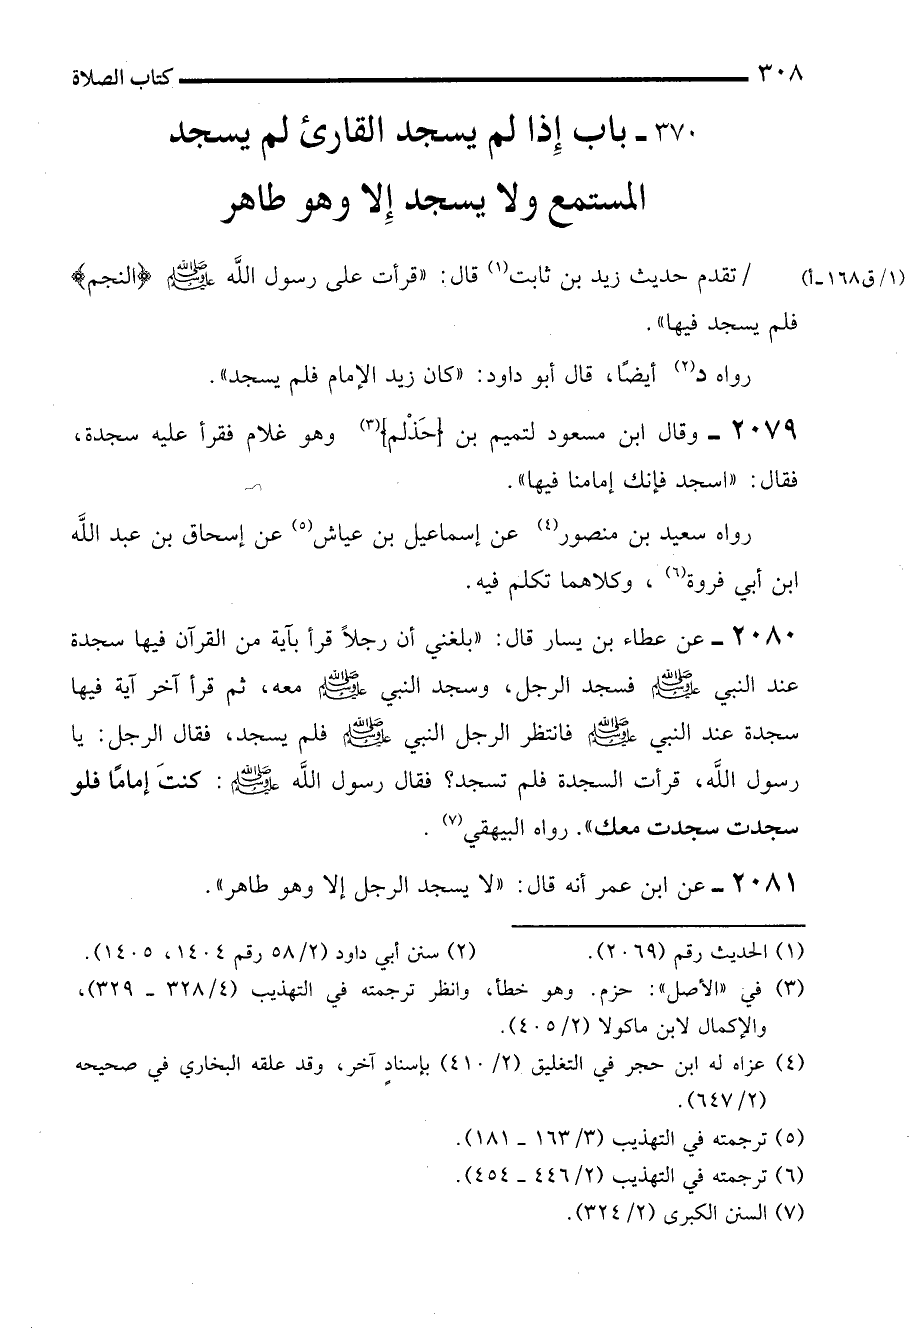 ٣٠٨ كتاب الصلاة
٣٧٠ ـ باب إِذا لم يسجد القارئ لم يسجد
المستمع ولا يسجد إِلا وهو طاهر
(١/ق١٦٨-أ) / تقدم حديث زيد بن ثابت(١) قال: «قرأت على رسول اللَّه ﷺ ﴿النجم﴾
فلم يسجد فيها».
رواه د(٢) أيضًا، قال أبو داود: «كان زيد الإمام فلم يسجد».
٢٠٧٩ ـ وقال ابن مسعود لتميم بن {حَذْلم}(٣) وهو غلام فقرأ عليه سجدة،
فقال: «اسجد فإنك إمامنا فيها».
رواه سعيد بن منصور(٤) عن إسماعيل بن عياش(٥) عن إسحاق بن عبد اللَّه
ابن أبي فروة(٦) ، وكلاهما تكلم فيه.
٢٠٨٠ ـ عن عطاء بن يسار قال: «بلغني أن رجلاً قرأ بآية من القرآن فيها سجدة
عند النبي ﷺ فسجد الرجل، وسجد النبي ﷺ معه، ثم قرأ آخر آية فيها
سجدة عند النبي ﷺ فانتظر الرجل النبي ﷺ فلم يسجد، فقال الرجل: يا
رسول اللَّه، قرأت السجدة فلم تسجد؟ فقال رسول اللَّه ﷺ : كنتَ إمامًا فلو
سجدت سجدت معك». رواه البيهقي(٧) .
٢٠٨١ ـ عن ابن عمر أنه قال: «لا يسجد الرجل إلا وهو طاهر».
(١) الحديث رقم (٢٠٦٩). (٢) سنن أبي داود (٥٨/٢ رقم ١٤٠٤، ١٤٠٥).
(٣) في «الأصل»: حزم. وهو خطأ، وانظر ترجمته في التهذيب (٣٢٨/٤ ـ ٣٢٩)،
والإكمال لابن ماكولا (٤٠٥/٢).
(٤) عزاه له ابن حجر في التغليق (٤١٠/٢) بإسنادٍ آخر، وقد علقه البخاري في صحيحه
(٦٤٧/٢).
(٥) ترجمته في التهذيب (١٦٣/٣ ـ ١٨١).
(٦) ترجمته في التهذيب (٤٤٦/٢ ـ ٤٥٤).
(٧) السنن الكبرى (٣٢٤/٢).